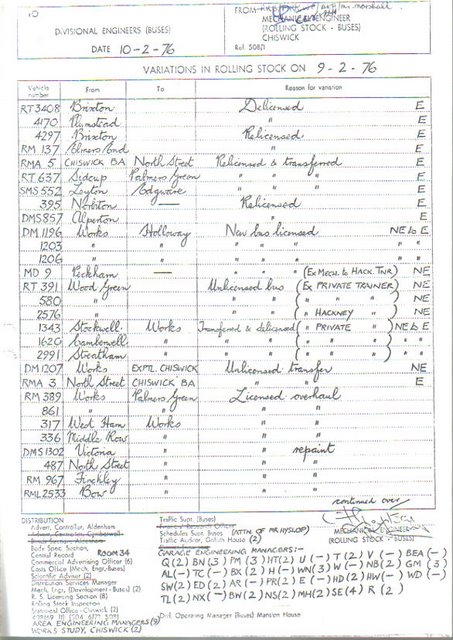 10
DIVISIONAL ENGINEERS (BUSES)
DATE 10-2-76
FROM
MECHANICAL ENGINEER
(ROLLING STOCK - BUSES)
CHISWICK
Ref. 508/1
VARIATIONS IN ROLLING STOCK ON 9-2-76
Vehicle number From To Reason for variation
RT 3408 Brixton Delicensed E
4170 Plumstead " E
4297 Brixton Relicensed E
RM 137 Elmers End " E
RMA 5 CHISWICK BA North Street Relicensed & transferred E
RT 637 Sidcup Palmers Green " " " E
SMS 552 Leyton Edgware " " " E
395 Norbiton — Relicensed E
DMS 857 Alperton " E
DM 1196 Works Holloway New bus licensed NE to E
1203 " " " " " " "
1206 " " " " " " "
MD 9 Peckham — " " " (Ex MECH. to HACK. TNR) NE
RT 391 Wood Green Unlicensed bus (Ex PRIVATE TRAINER) NE
580 " " " ( " " " ) NE
2576 " " " ( " HACKNEY " ) NE
1343 Stockwell Works Transferred & delicensed ( " PRIVATE " ) NE to E
1620 Camberwell " " " " ( " " " ) " "
2991 Streatham " " " " ( " " " ) " "
DM 1207 Works EXPTL CHISWICK Unlicensed transfer NE
RMA 3 North Street CHISWICK BA " " E
RM 389 Works Palmers Green Licensed overhaul
861 " " " "
317 West Ham Works " "
336 Middle Row " " "
DMS 1302 Victoria " " repaint
487 North Street " " "
RM 967 Finchley " " "
RML 2533 Bow " " "
continued over
DISTRIBUTION
MECHANICAL ENGINEER
Advert. Controller, Aldenham
Body Spec. Section,
Central Record ROOM 34
Commercial Advertising Officer (6)
Costs Office (Mech. Engr./Buses)
Scientific Adviser (2)
Distribution Services Manager
Mech. Engr. (Development - Buses) (2)
R. S. Licensing Section (8)
Rolling Stock Inspection
AREA ENGINEERING MANAGERS
WORKS STUDY, CHISWICK (2)
Traffic Supt. (Buses)
Schedules Supt. (Buses) (ATTN OF MR HYSLOP)
GARAGE ENGINEERING MANAGERS:-
Q(2) BN(3) PM(3) HT(2) U(-) T(2) V(-) BEA(-)
AL(-) TC(-) BX(2) H(-) WN(3) W(-) NB(2) GM(3)
SW(2) ED(2) AR(-) PR(2) E(-) HD(2) HW(-) WD(-)
TL(2) NX(-) BW(2) NS(2) MH(2) SE(4) R(2)
Operating Manager (Buses) Mansion House